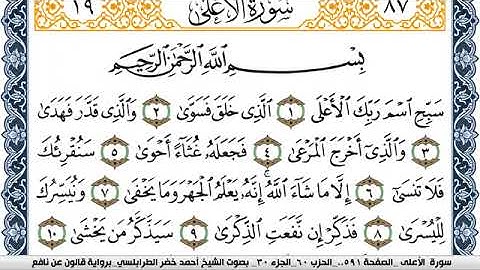 ١٩ سُورَةُ الأَعْلَى ٨٧
بِسْمِ اللَّهِ الرَّحْمَنِ الرَّحِيمِ
سَبِّحِ اسْمَ رَبِّكَ الْأَعْلَى ١ الَّذِي خَلَقَ فَسَوَّى ٢ وَالَّذِي قَدَّرَ فَهَدَى
٣ وَالَّذِي أَخْرَجَ الْمَرْعَى ٤ فَجَعَلَهُ غُثَاءً أَحْوَى ٥ سَنُقْرِئُكَ
فَلَا تَنسَى ٦ إِلَّا مَا شَاءَ اللَّهُ إِنَّهُ يَعْلَمُ الْجَهْرَ وَمَا يَخْفَى ٧ وَنُيَسِّرُكَ
لِلْيُسْرَى ٨ فَذَكِّرْ إِن نَّفَعَتِ الذِّكْرَى ٩ سَيَذَّكَّرُ مَن يَخْشَى ١٠
سورة الأعلى _الصفحة ٥٩١_ الحزب ٦٠_ الجزء ٣٠_ بصوت الشيخ أحمد خضر الطرابلسي_ برواية قالون عن نافع